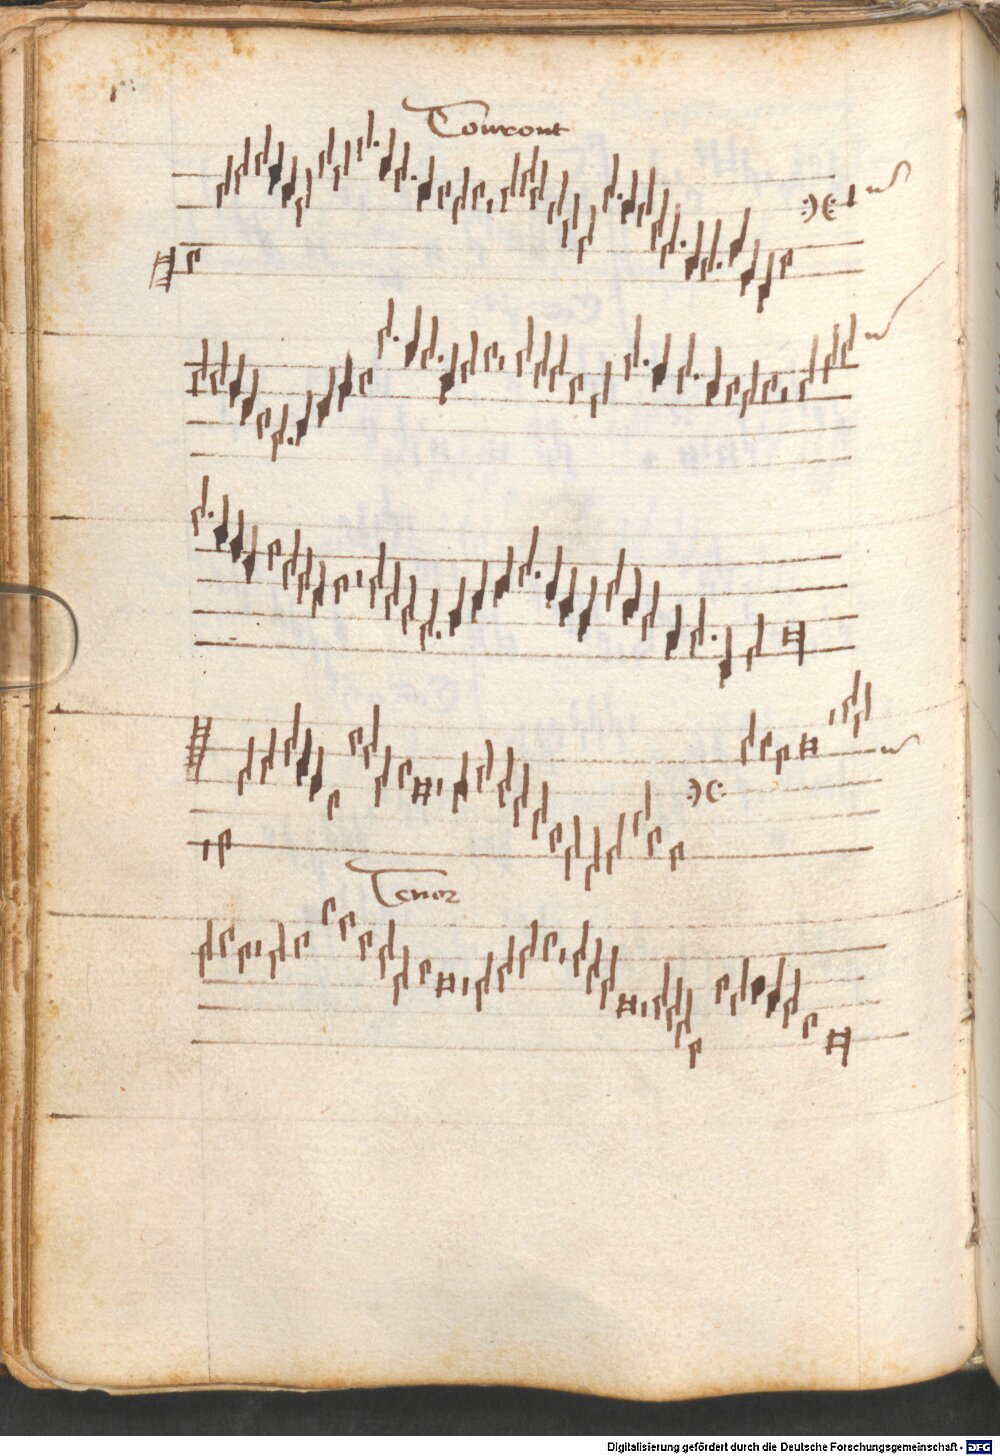 Touront
Tenor
Digitalisierung gefördert durch die Deutsche Forschungsgemeinschaft - DFG